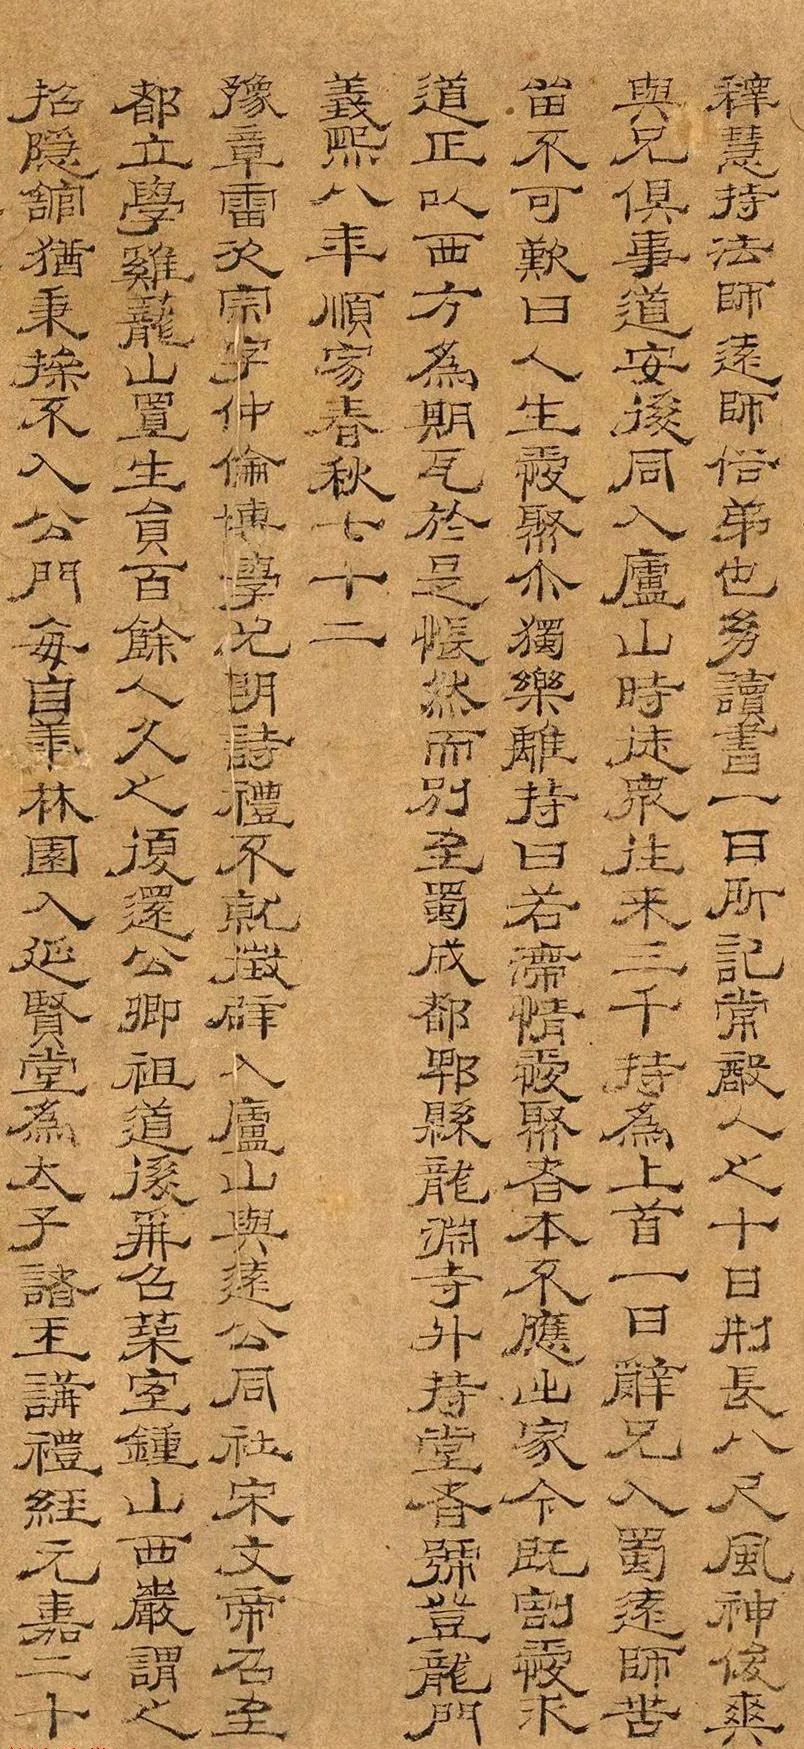 釋慧持法師遠師俗弟也幼讀書一日所記常敵人之十日形長八尺風神俊爽
與兄俱事道安後同入廬山時徒衆往来三千持為上首一日辭兄入蜀遠師苦
留不可歎曰人生愛聚尒獨樂離持曰若滯情愛聚者本不應出家今既割愛求
道正以西方為期耳於是悵然而別至蜀成都郫縣龍淵寺升持堂者號登龍門
義熙八年順寂春秋七十二
豫章雷次宗字仲倫博學尤明詩禮不就徵辟入廬山與遠公同社宋文帝召至
都立學雞蘢山置生員百餘人久之復還公卿祖道後再召築室鍾山西巖謂之
招隱館猶秉操不入公門每自華林園入延賢堂為太子諸王講禮經元嘉二十